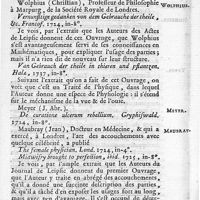 Wolphius (Christian), Professeur de Philosophie
à Marpurg, de la Société Royale de Londres.
WOLPHIUS.
Vernunftige gedanken von dem Gebrauche der theile,
&c. Francof. 1724, in-8°.
Je vois, par l'extrait que les Auteurs des Actes
de Leipsic donnent de cet Ouvrage, que Wolphius
s'est avantageusement servi de ses connoissances en
Mathématiques, pour expliquer l'usage des parties;
mais il n'a rien dit de nouveau sur leur structure.
Van Gebrauch der theile in plantzen und pflantzen.
Hala, 1737, in-8°.
Suivant l'extrait qu'on a fait de cet Ouvrage, on
voit que c'est un Traité de Physique, dans lequel
l'Auteur donne un Traité de Physiologie: il s'étend
sur le méchanisme de la vue & de l'ouie.
Meyer (J. Abr.).
MEYER.
De curatione ulcerum rebellium, Gryphiswald.
1724, in-8°.
Maubray (Jean), Docteur en Médecine, & qui a
MAUBRAY.
exercé, à Londres, l'art des accouchemens avec
quelque célébrité, a publié
The female physician. Lond. 1724, in-4°.
Midwifry brought to perfection, ibid. 1725, in-8°.
Je vois, par l'ample extrait que les Auteurs du
Journal de Leipsic donnent du premier Ouvrage,
que l'Auteur y traite des accouchemens,
qu'il a donné une succinte description des parties,
& qu'il s'est étendu sur les maladies qui surviennent